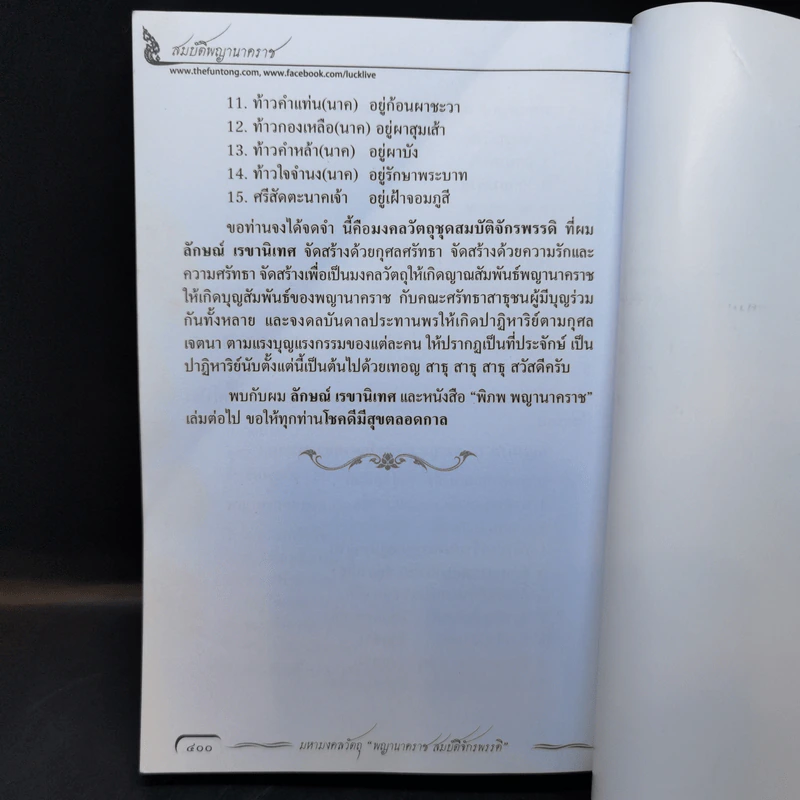 สมบัติพญานาคราช
www.thefuntong.com, www.facebook.com/lucklive
11. ท้าวคำแท่น(นาค) อยู่ก้อนผาชะวา
12. ท้าวกองเหลือ(นาค) อยู่ผาสุมเส้า
13. ท้าวคำหล้า(นาค) อยู่ผาบัง
14. ท้าวใจจำนง(นาค) อยู่รักษาพระบาท
15. ศรีสัดตะนาคเจ้า อยู่เฝ้าจอมภูสี
ขอท่านจงได้จดจำ นี้คือมงคลวัตถุชุดสมบัติจักรพรรดิ ที่ผม
ลักษณ์ เรขานิเทศ จัดสร้างด้วยกุศลศรัทธา จัดสร้างด้วยความรักและ
ความศรัทธา จัดสร้างเพื่อเป็นมงคลวัตถุให้เกิดญาณสัมพันธ์พญานาคราช
ให้เกิดบุญสัมพันธ์ของพญานาคราช กับคณะศรัทธาสาธุชนผู้มีบุญร่วม
กันทั้งหลาย และจงดลบันดาลประทานพรให้เกิดปาฏิหาริย์ตามกุศล
เจตนา ตามแรงบุญแรงกรรมของแต่ละคน ให้ปรากฏเป็นที่ประจักษ์ เป็น
ปาฏิหาริย์นับตั้งแต่นี้เป็นต้นไปด้วยเทอญ สาธุ สาธุ สาธุ สวัสดีครับ
พบกับผม ลักษณ์ เรขานิเทศ และหนังสือ “พิภพ พญานาคราช”
เล่มต่อไป ขอให้ทุกท่านโชคดีมีสุขตลอดกาล
๔๐๐
มหามงคลวัตถุ “พญานาคราช สมบัติจักรพรรดิ”